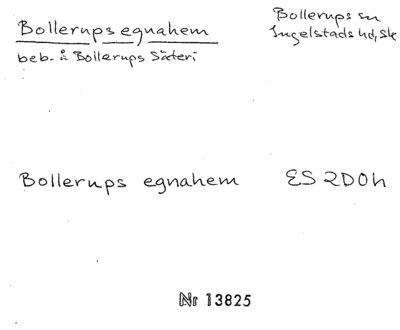 Bollerups egnahem
beb. å Bollerups Säteri
Bollerups sn
Ingelstads hd, Sk
Bollerups egnahem
ES 2D0h
Nr 13825